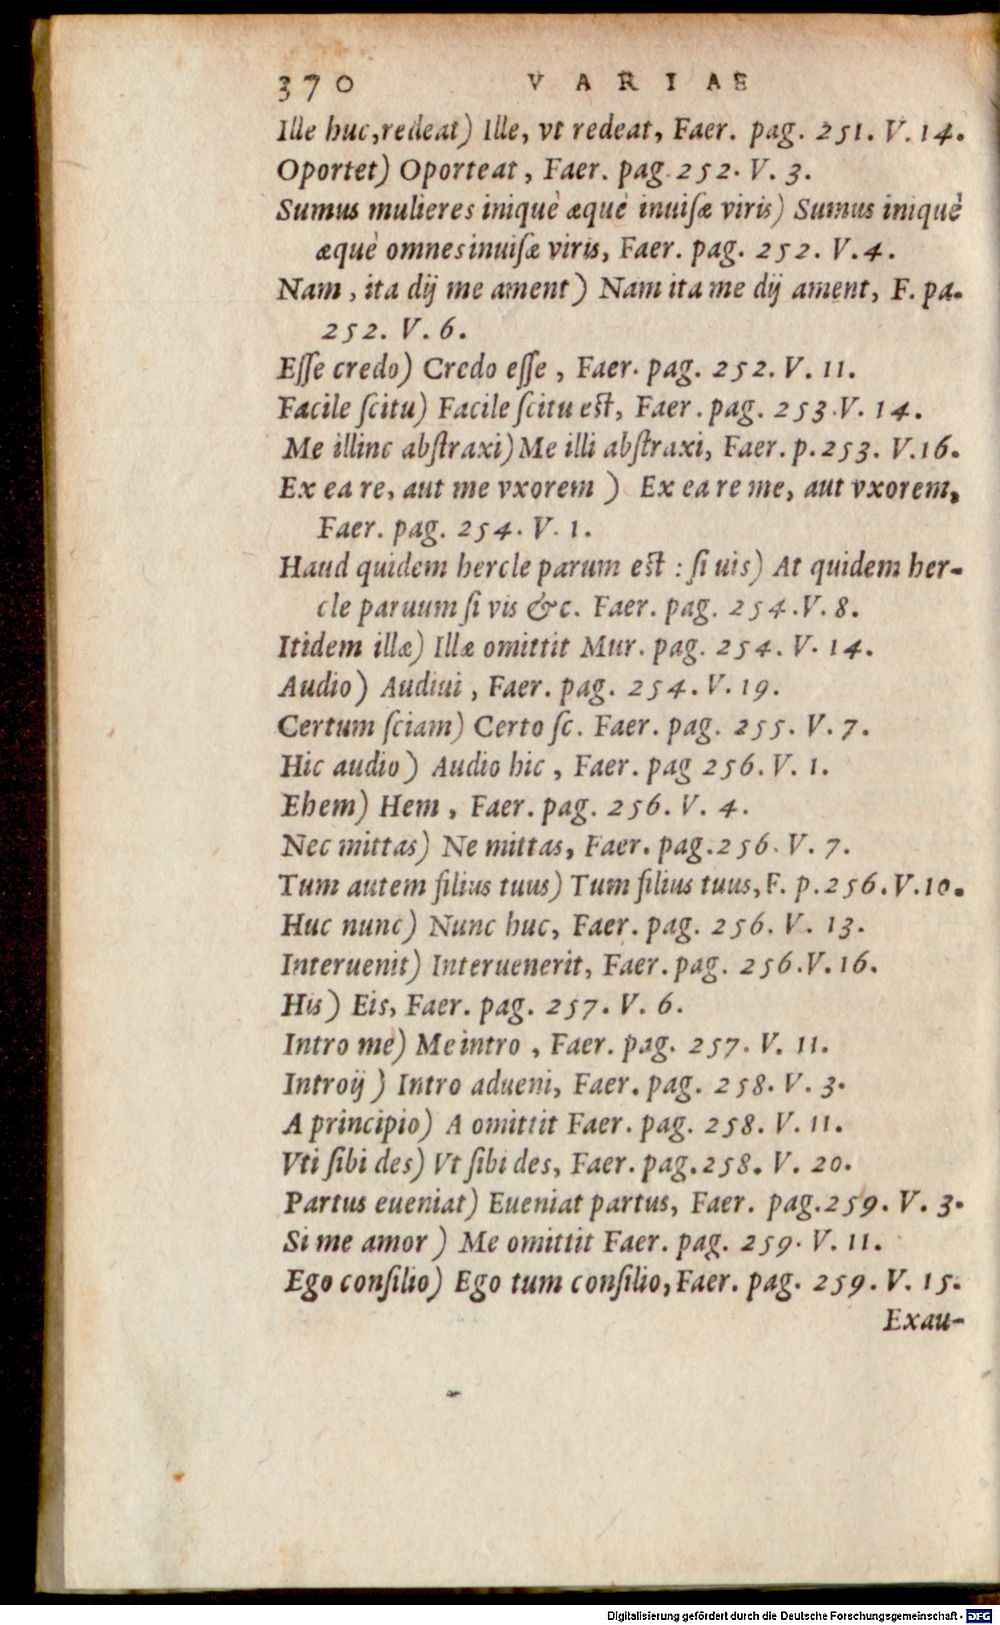 370 VARIAE
Ille huc,redeat) Ille, vt redeat, Faer. pag. 251. V. 14.
Oportet) Oporteat, Faer. pag. 252. V. 3.
Sumus mulieres iniquè æquè inuiſæ viris) Sumus iniquè
æquè omnes inuiſæ viris, Faer. pag. 252. V. 4.
Nam, ita dij me ament) Nam ita me dij ament, F. pa.
252. V. 6.
Eſſe credo) Credo eſſe, Faer. pag. 252. V. 11.
Facile ſcitu) Facile ſcitu eſt, Faer. pag. 253. V. 14.
Me illinc abſtraxi) Me illi abſtraxi, Faer. p. 253. V. 16.
Ex ea re, aut me vxorem) Ex ea re me, aut vxorem,
Faer. pag. 254. V. 1.
Haud quidem hercle parum eſt : ſi uis) At quidem her-
cle paruum ſi vis &c. Faer. pag. 254. V. 8.
Itidem illæ) Illæ omittit Mur. pag. 254. V. 14.
Audio) Audiui, Faer. pag. 254. V. 19.
Certum ſciam) Certo ſc. Faer. pag. 255. V. 7.
Hic audio) Audio hic, Faer. pag 256. V. 1.
Ehem) Hem, Faer. pag. 256. V. 4.
Nec mittas) Ne mittas, Faer. pag. 256. V. 7.
Tum autem filius tuus) Tum filius tuus, F. p. 256. V. 10.
Huc nunc) Nunc huc, Faer. pag. 256. V. 13.
Interuenit) Interuenerit, Faer. pag. 256. V. 16.
His) Eis, Faer. pag. 257. V. 6.
Intro me) Me intro, Faer. pag. 257. V. 11.
Introij) Intro adueni, Faer. pag. 258. V. 3.
A principio) A omittit Faer. pag. 258. V. 11.
Vti ſibi des) Vt ſibi des, Faer. pag. 258. V. 20.
Partus eueniat) Eueniat partus, Faer. pag. 259. V. 3.
Si me amor) Me omittit Faer. pag. 259. V. 11.
Ego conſilio) Ego tum conſilio, Faer. pag. 259. V. 15.
Exau-
Digitalisierung gefördert durch die Deutsche Forschungsgemeinschaft - DFG